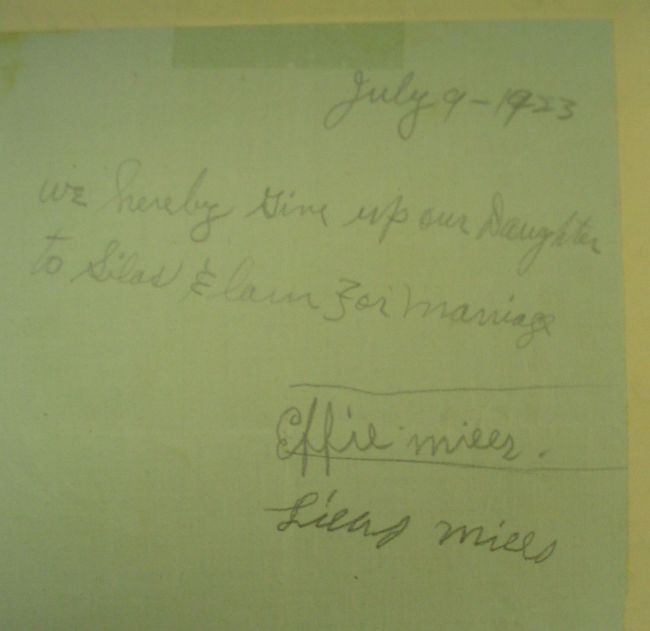 July 9-1923
we hereby Give up our Daughter
to Silas Elam For Marriage
Effie miller.
miller